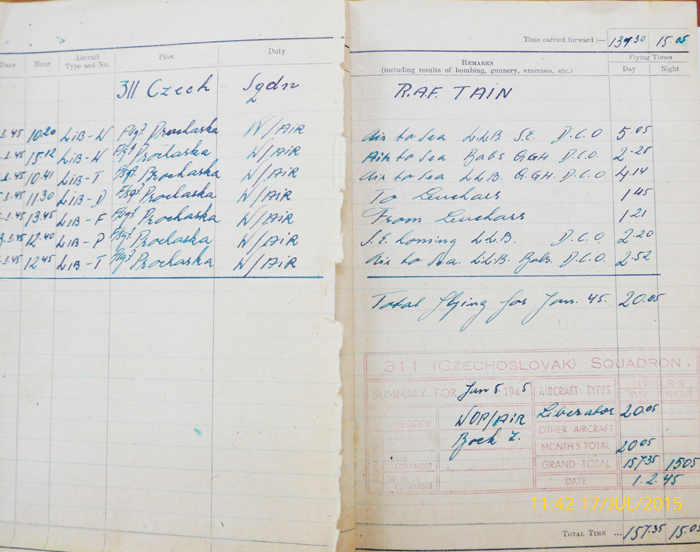 Time carried forward :— 137.30 15.05
Date Hour Aircraft Type and No. Pilot Duty
Remarks (including results of bombing, gunnery, exercises, etc.) Flying Times Day Night
311 Czech Sqdn R.A.F. TAIN
.1.45 10.20 LiB-W Prochaska W/AiR Air to Sea L.L.B. S.E. D.C.O 5.05
.1.45 15.12 LiB-W Prochaska W/AiR Air to Sea Babs G.G.H. D.C.O.
.1.45 10.41 LiB-T Prochaska W/AiR Air to Sea L.L.B. G.G.H. D.C.O. 4.14
.1.45 11.30 LiB-D Prochaska W/AiR To Leuchars 1.45
.1.45 13.45 LiB-F Prochaska W/AiR From Leuchars 1.21
.1.45 12.40 LiB-P Prochaska W/AiR S.E. homing L.L.B. D.C.O. 2.20
.1.45 12.45 LiB-T Prochaska W/AiR Air to Sea. L.L.B. Babs. D.C.O. 2.52
Total flying for Jan. 45. 20.05
311 (CZECHOSLOVAK) SQUADRON.
SUMMARY FOR Jan 1945 AIRCRAFT TYPES HOURS DAY NIGHT
WOP/AiR Liberator 20.05
OTHER AIRCRAFT
MONTH'S TOTAL 20.05
GRAND TOTAL 157.35 15.05
DATE 1.2.45
11:42 17/JUL/2015
Total Time ... 157.35 15.05